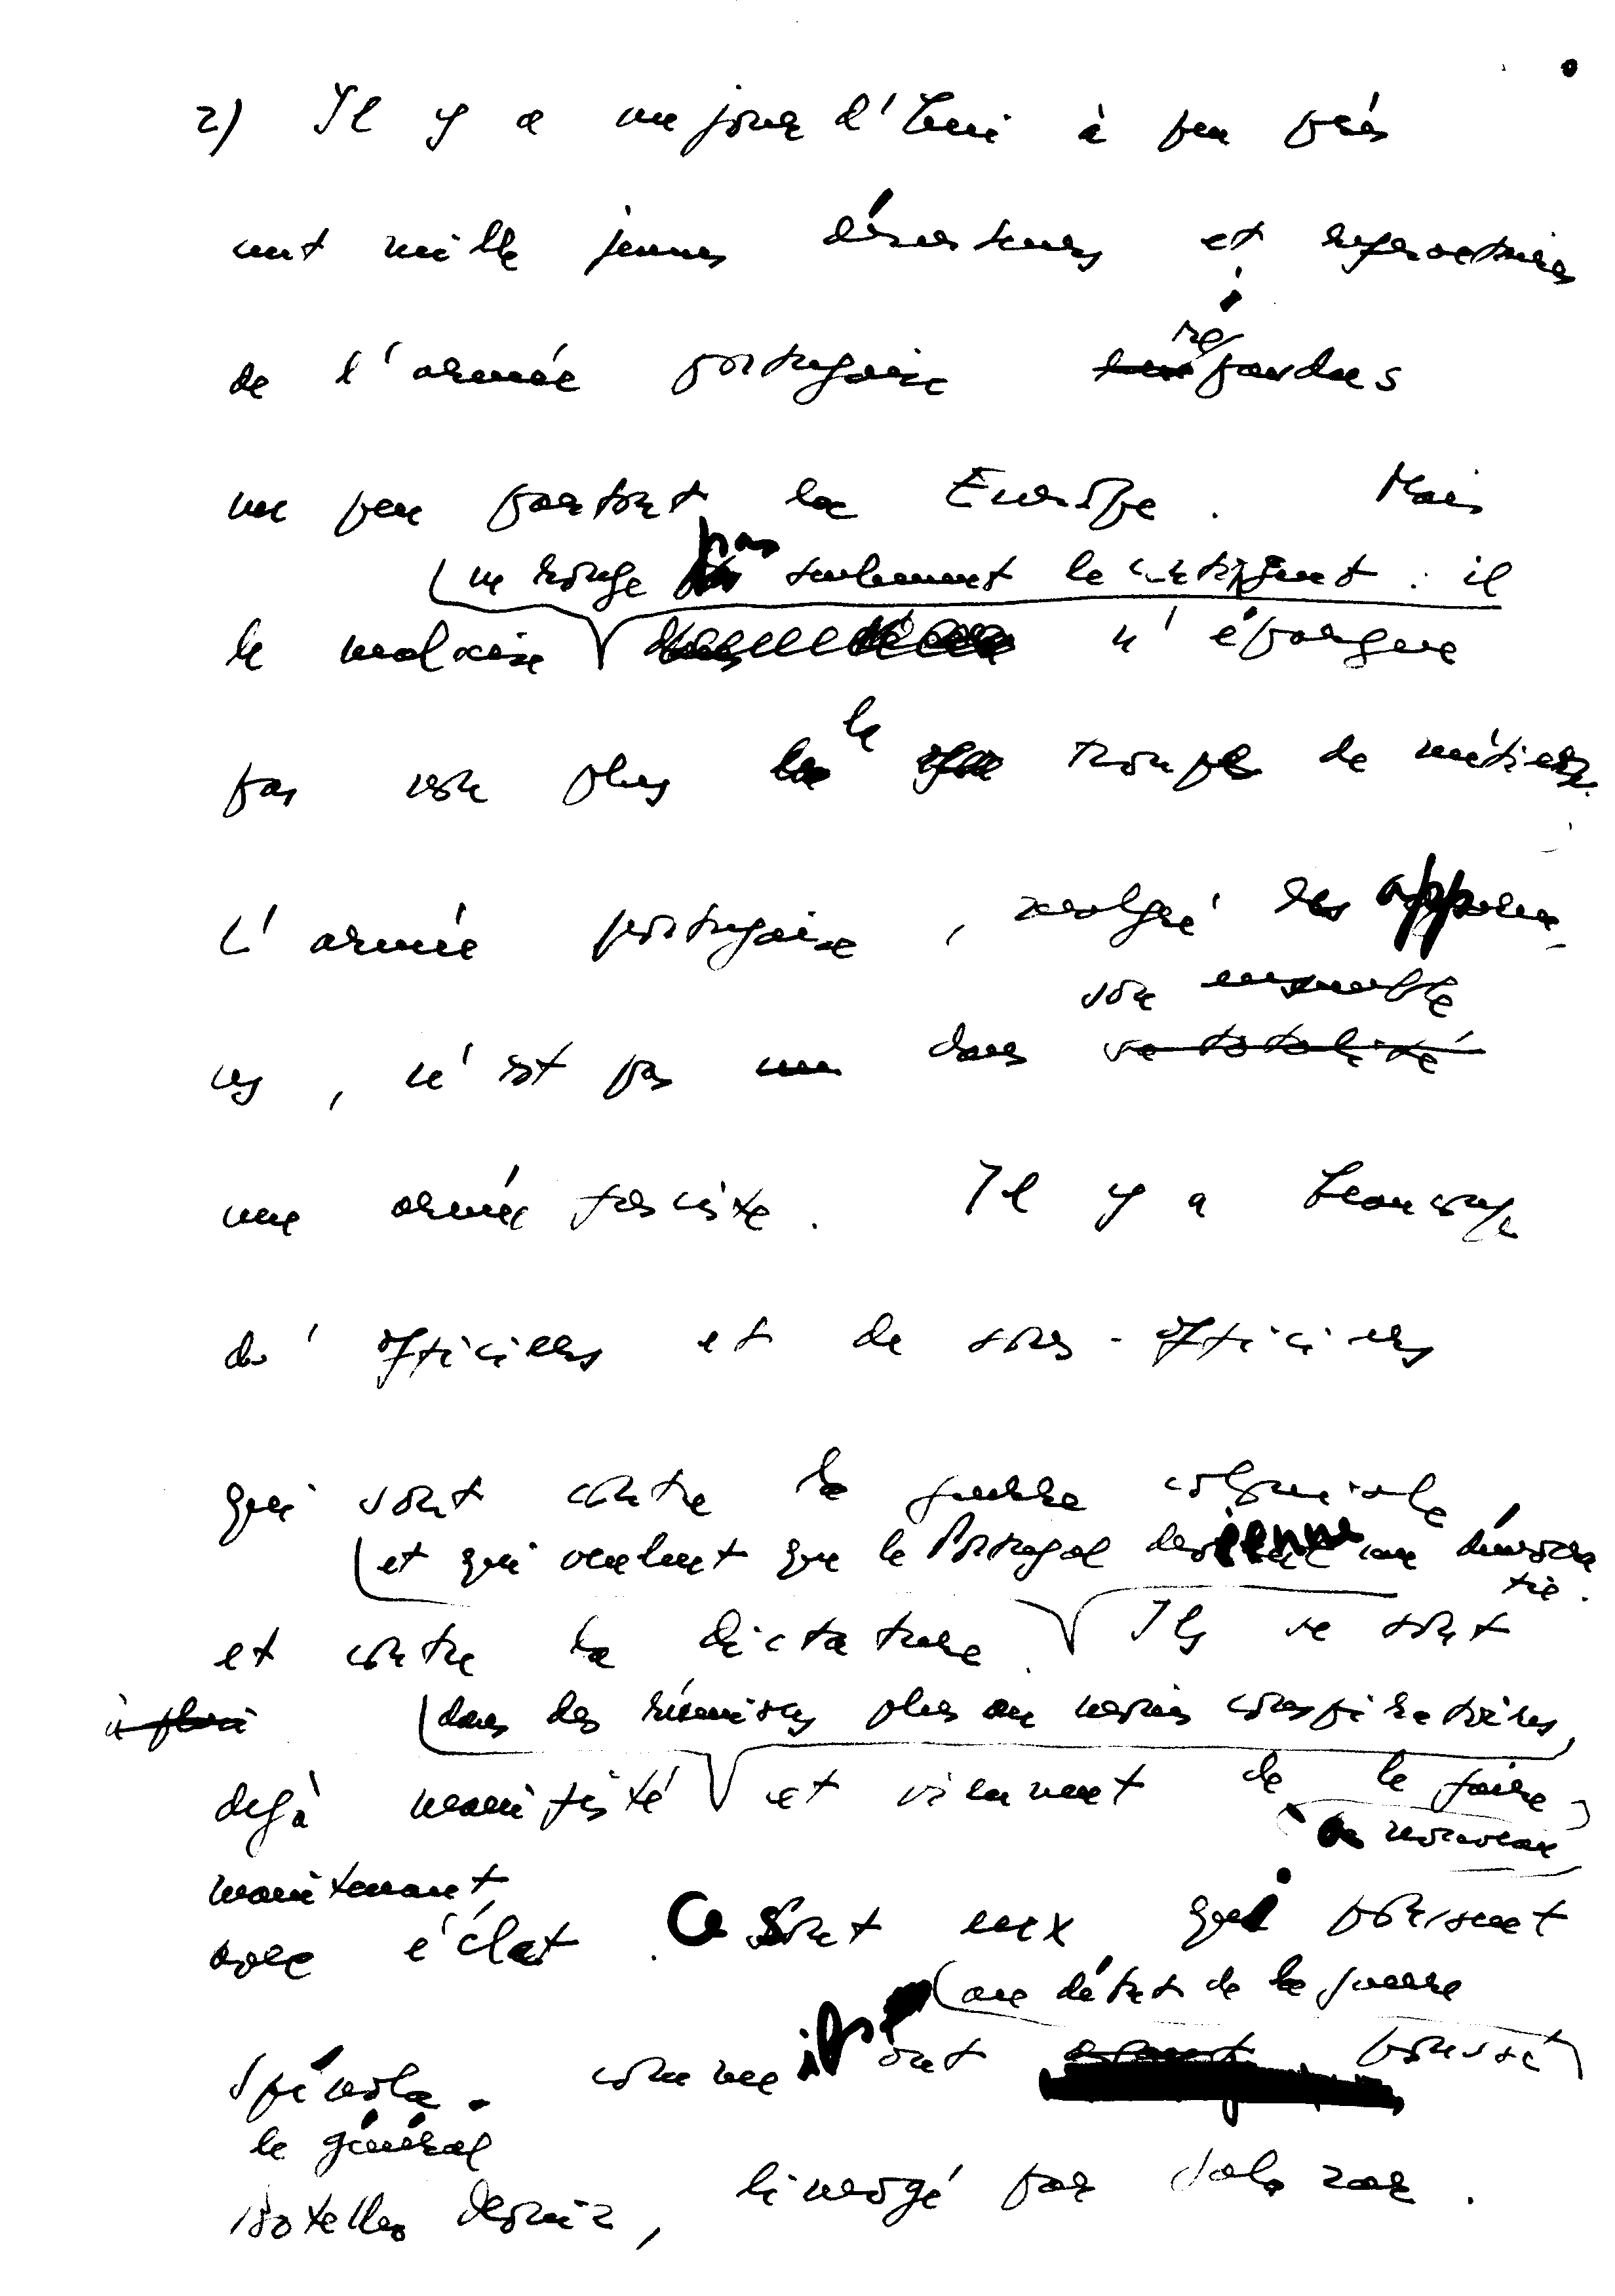 2) Il y a aujourd'hui à peu près
cent mille jeunes déserteurs et réfractaires
de l'armée portugaise répandus
un peu partout en Europe. Mais
ne ronge pas seulement le contingent : il
le malaise n'épargne
pas non plus la troupe de métier.
L'armée portugaise, malgré les apparen
ces, n'est pas dans son ensemble
sa totalité
une armée fasciste. Il y a beaucoup
d'officiers et de sous-officiers
qui sont contre la guerre coloniale
et qui veulent que le Portugal devienne une démocra
tie.
et contre la dictature. Ils se sont
dans des réunions plus ou moins conspiratrices,
déjà manifesté et viennent de le faire
de nouveau
maintenant
avec éclat. Ce sont eux qui poussent
au début de la guerre
Spínola. comme ils ont poussé
le général
Botelho Moniz, limogé par Salazar.